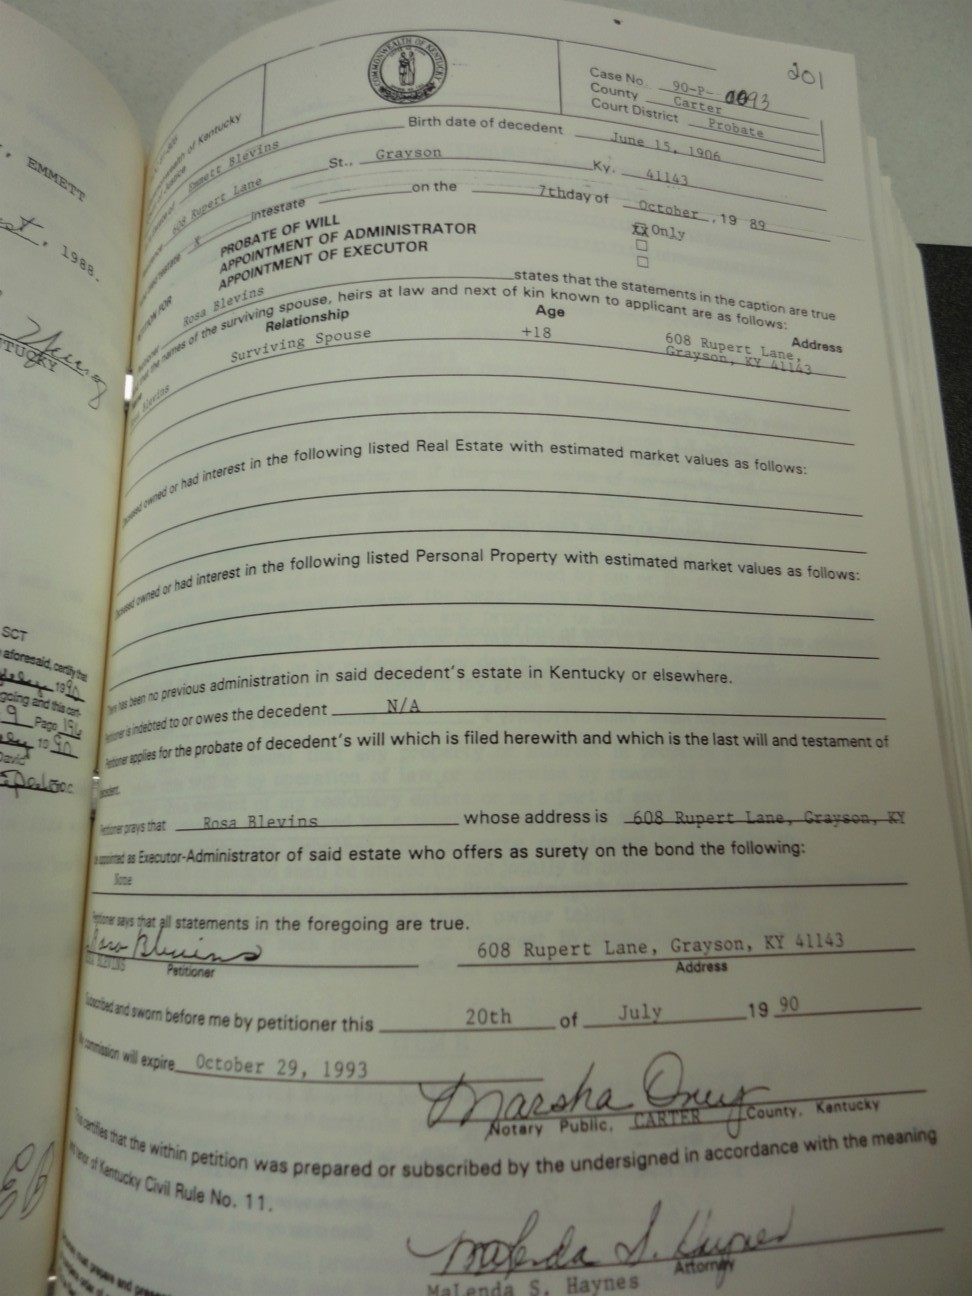 201
COMMONWEALTH OF KENTUCKY
Case No. 90-P- 0093
County Carter
Court District Probate
of Kentucky
Emmett Blevins Birth date of decedent June 15, 1906
Rupert Lane St., Grayson Ky. 41143
x intestate on the 7th day of October, 19 89
PROBATE OF WILL XX Only
APPOINTMENT OF ADMINISTRATOR
APPOINTMENT OF EXECUTOR
Rosa Blevins states that the statements in the caption are true
and the names of the surviving spouse, heirs at law and next of kin known to applicant are as follows:
Relationship Age Address
Blevins Surviving Spouse +18 608 Rupert Lane,
Grayson, KY 41143
owned or had interest in the following listed Real Estate with estimated market values as follows:
owned or had interest in the following listed Personal Property with estimated market values as follows:
has been no previous administration in said decedent's estate in Kentucky or elsewhere.
Petitioner is indebted to or owes the decedent N/A
Petitioner applies for the probate of decedent's will which is filed herewith and which is the last will and testament of
decedent.
Petitioner prays that Rosa Blevins whose address is 608 Rupert Lane, Grayson, KY
appointed as Executor-Administrator of said estate who offers as surety on the bond the following:
None
Petitioner says that all statements in the foregoing are true.
Rosa Blevins 608 Rupert Lane, Grayson, KY 41143
BLEVINS Petitioner Address
Subscribed and sworn before me by petitioner this 20th of July 19 90
commission will expire October 29, 1993
Marsha
Notary Public, CARTER County, Kentucky
certifies that the within petition was prepared or subscribed by the undersigned in accordance with the meaning
of Kentucky Civil Rule No. 11.
Malenda S. Haynes
Attorney
MaLenda S. Haynes
, EMMETT
, 1988.
SCT
aforesaid, certify the
1990
going and this cert-
9 Page 196
1990
David